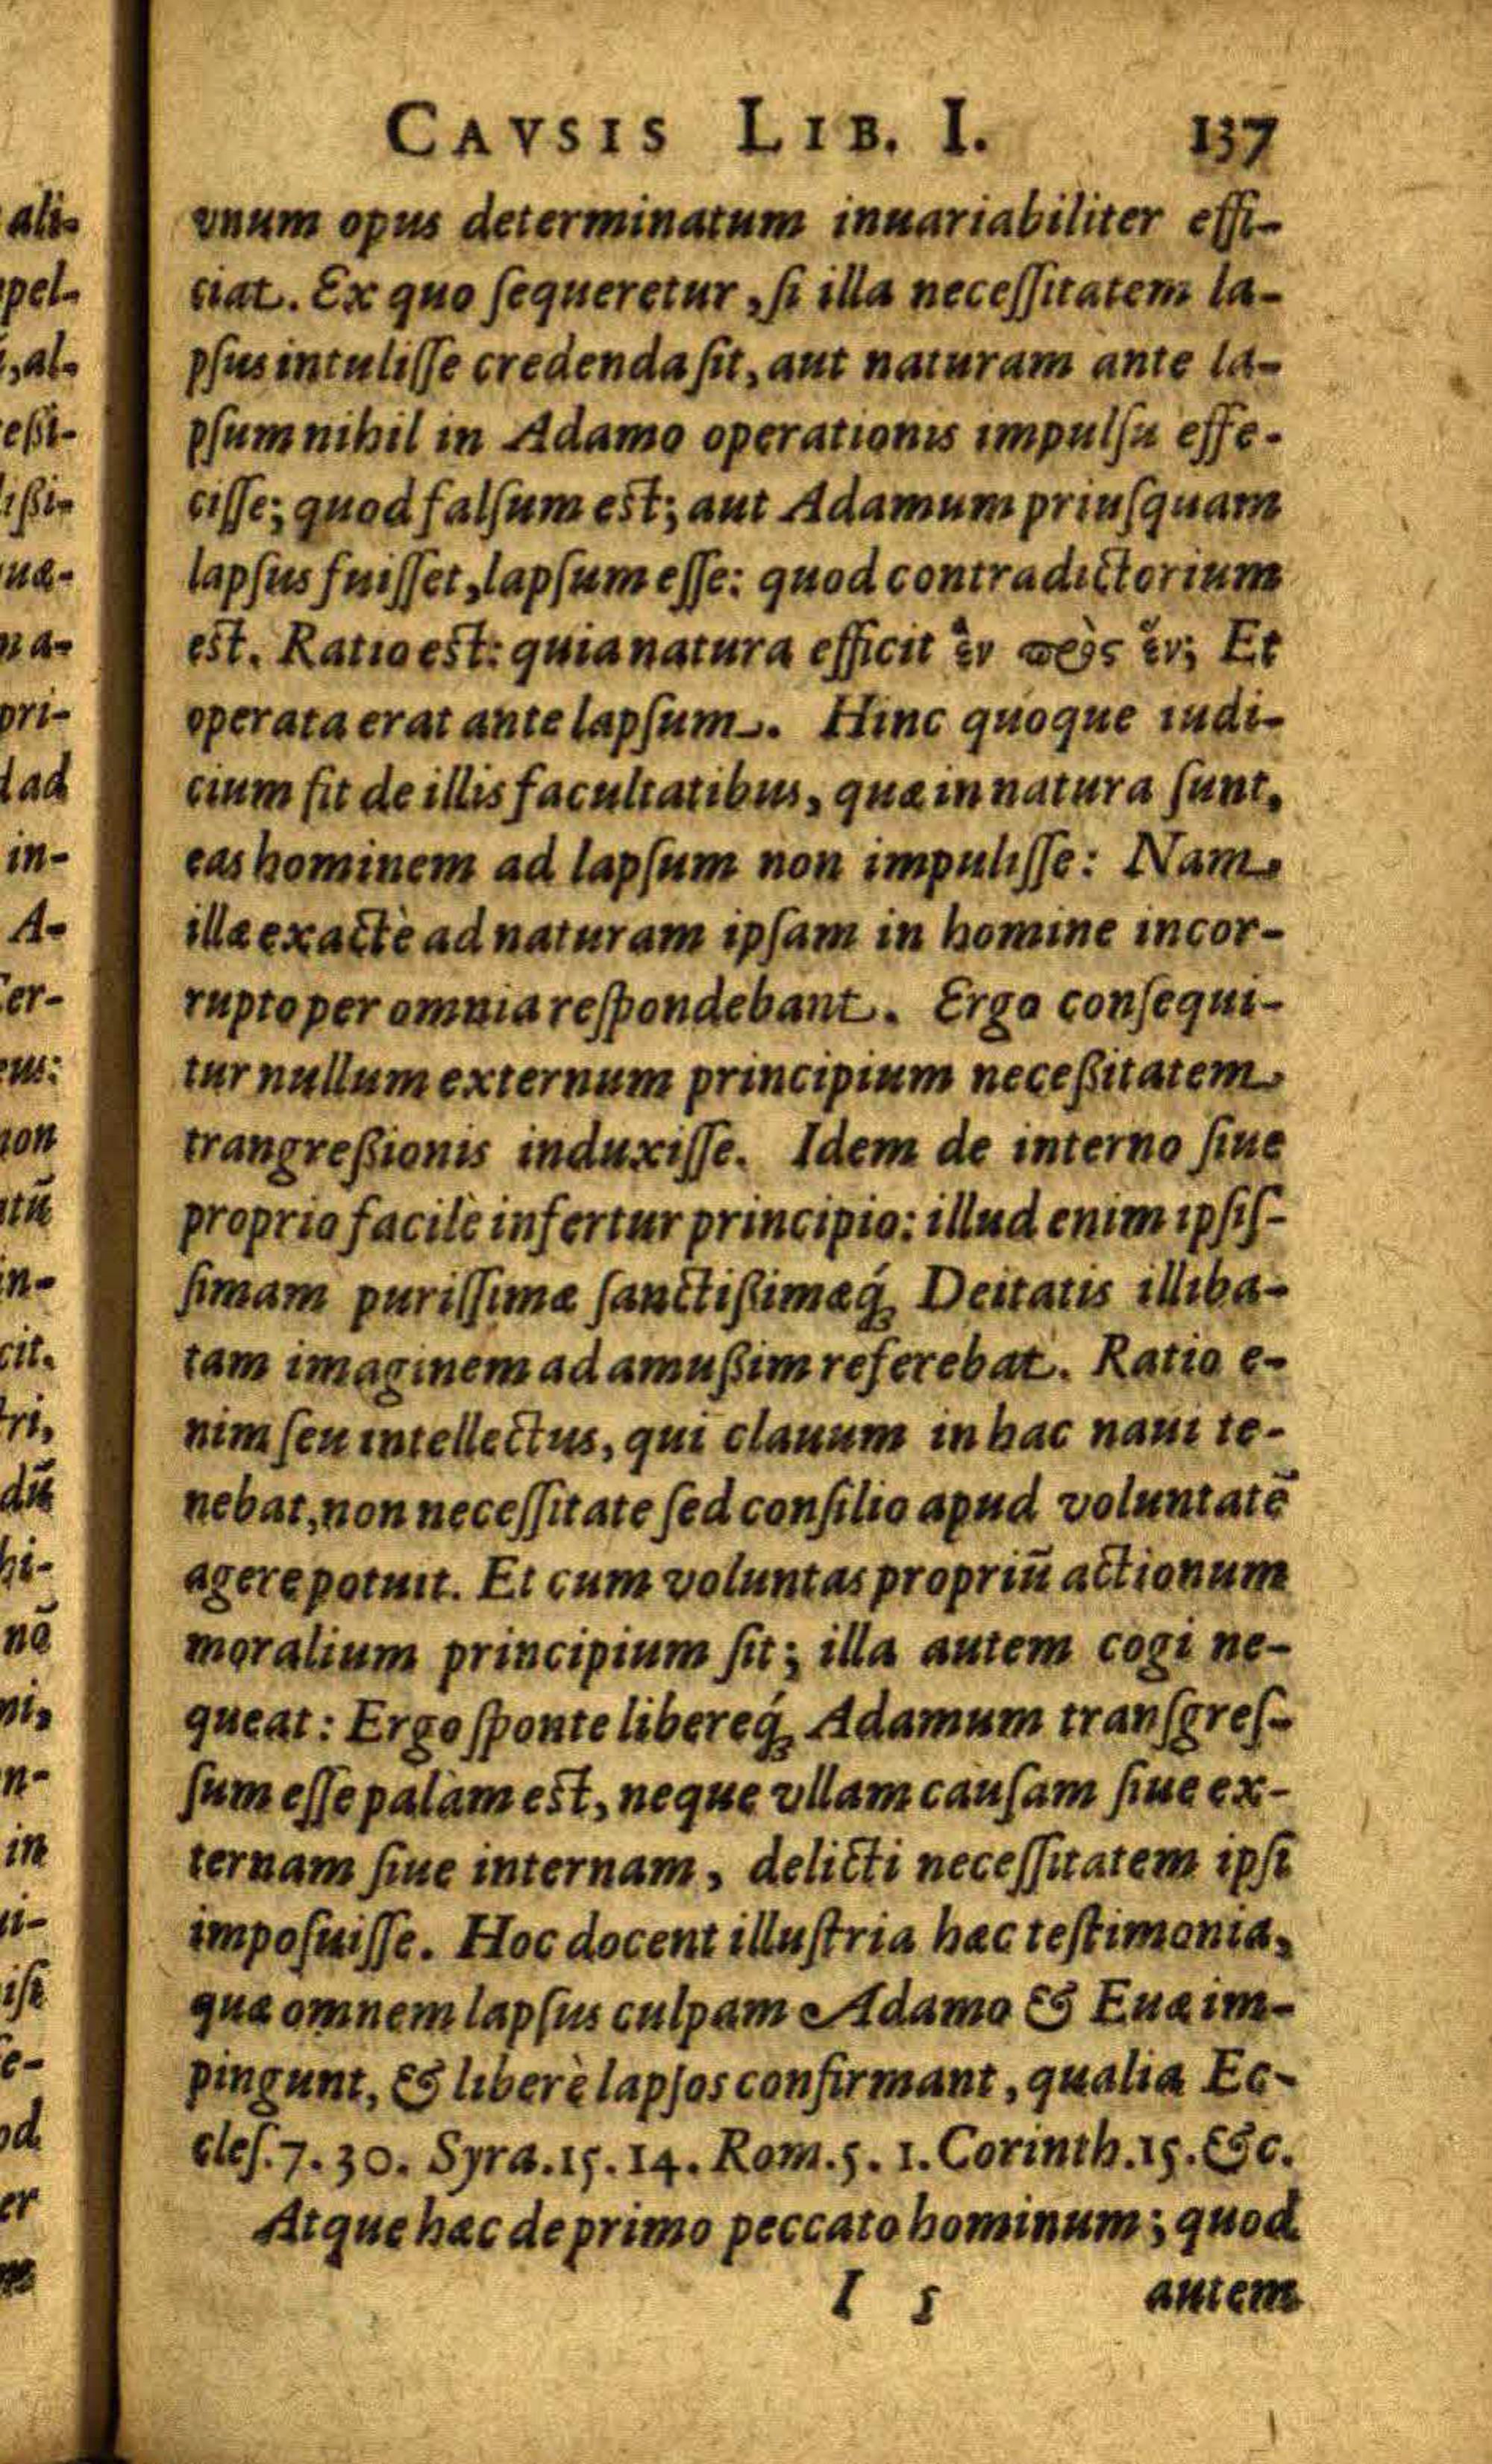 CAVSIS LIB. I. 137
vnum opus determinatum inuariabiliter effi-
ciat. Ex quo ſequeretur, ſi illa neceſſitatem la-
pſus intuliſſe credenda ſit, aut naturam ante la-
pſum nihil in Adamo operationis impulſu effe-
ciſſe; quod falſum est; aut Adamum priuſquam
lapſus fuiſſet, lapſum eſſe: quod contradictorium
est. Ratio est: quia natura efficit ἓν πρὸς ἓν; Et
operata erat ante lapſum. Hinc quoque iudi-
cium fit de illis facultatibus, quæ in natura ſunt,
eas hominem ad lapſum non impuliſſe: Nam
illæ exactè ad naturam ipſam in homine incor-
rupto per omnia reſpondebant. Ergo conſequi-
tur nullum externum principium neceßitatem
trangreßionis induxiſſe. Idem de interno ſiue
proprio facilè infertur principio: illud enim ipſiſ-
ſimam puriſſimæ ſanctißimæq́; Deitatis illiba-
tam imaginem ad amußim referebat. Ratio e-
nim ſeu intellectus, qui clauum in hac naui te-
nebat, non neceſſitate ſed conſilio apud voluntatē
agere potuit. Et cum voluntas propriū actionum
moralium principium ſit; illa autem cogi ne-
queat: Ergo ſponte libereq́; Adamum tranſgreſ-
ſum eſſe palàm est, neque vllam cauſam ſiue ex-
ternam ſiue internam, delicti neceſſitatem ipſi
impoſuiſſe. Hoc docent illuſtria hæc teſtimonia,
quæ omnem lapſus culpam Adamo & Euæ im-
pingunt, & liberè lapſos confirmant, qualia Ec-
cleſ. 7. 30. Syra. 15. 14. Rom. 5. 1. Corinth. 15. &c.
Atque hæc de primo peccato hominum; quod
I 5 autem
ali-
pel-
,al-
eßi-
ißi-
uæ-
na-
pri-
ad
in-
A-
er-
us:
non
tū
in-
cit.
ri,
dū
hi-
nō
ni,
n-
in
ui-
iſi
e-
od
er